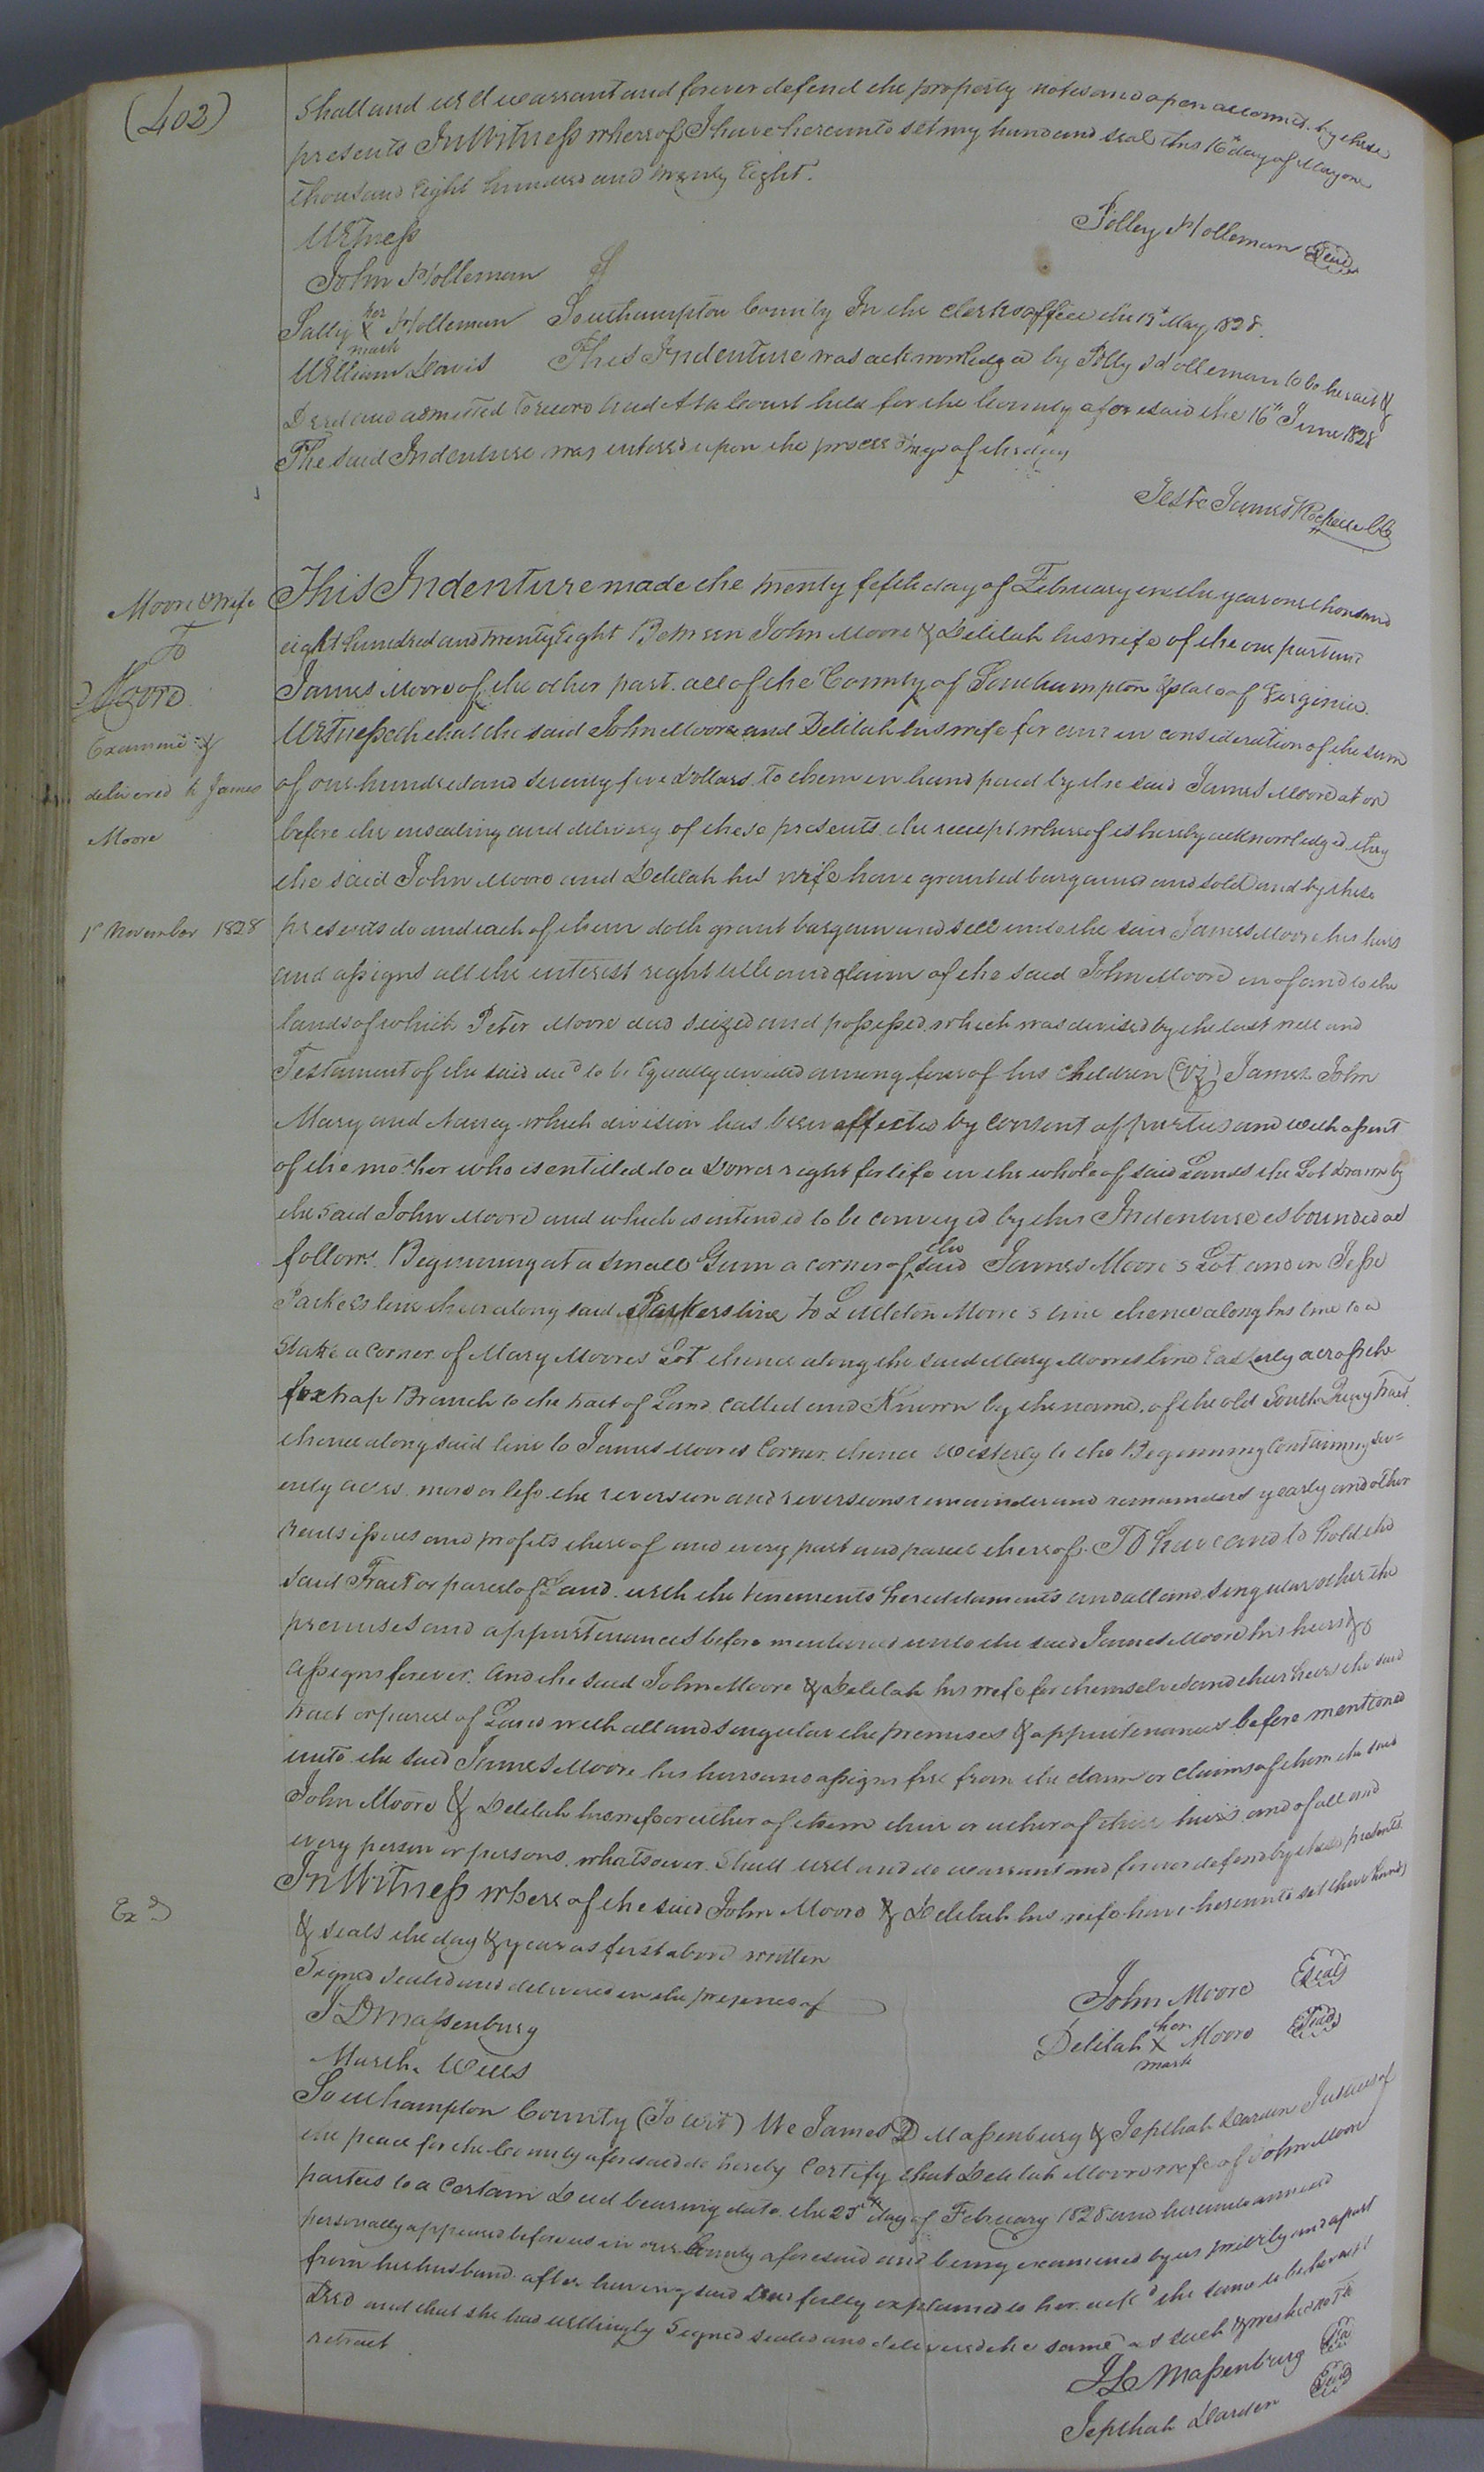 (402)
Shall and will warrant and forever defend the property notes and open accounts by these
presents In Witness whereof I have hereunto set my hand and seal this 16th day of May one
thousand Eight hundred and twenty Eight.
Witness
Polley Holleman Seal
John Holleman
Sally her X mark Holleman Southampton County In the clerks office the 19th May 1828.
William Davis This Indenture was acknowledged by Polly Holleman to be her act &
Deed and admitted to record And At a Court held for the County aforesaid the 16th June 1828
The said Indenture was entered upon the proceedings of the day
Teste James Rochelle CC
Moore & wife
To
Moore
Examined &
delivered to James
Moore
1st November 1828
This Indenture made the twenty fifth day of February in the year one thousand
eight hundred and twenty Eight Between John Moore & Delilah his wife of the one part and
James Moore of the other part all of the County of Southampton & state of Virginia.
Witnesseth that the said John Moore and Delilah his wife for and in consideration of the sum
of one hundred and seventy five Dollars to them in hand paid by the said James Moore at or
before the ensealing and delivery of these presents the receipt whereof is hereby acknowledged they
the said John Moore and Delilah his wife have granted bargained and sold and by these
presents do and each of them doth grant bargain and sell unto the said James Moore his heirs
and assigns all the interest right title and claim of the said John Moore in of and to the
lands of which Peter Moore died seized and possessed which was devised by the last will and
Testament of the said decd to be Equally divided among four of his Children (viz) James John
Mary and Nancy which division has been affected by consent of parties and with assent
of the mother who is entitled to a Dower right for life in the whole of said Lands the Lot Drawn by
the said John Moore and which is intended to be conveyed by this Indenture is bounded as
follows. Beginning at a small Gum a corner of the said James Moore's Lot and in Jesse
Parkers line then along said Parkers line to Littleton Moore's line thence along his line to a
Stake a corner of Mary Moores Lot thence along the said Mary Moores line Easterly across the
fox trap Branch to the tract of Land called and Known by the name of the old South Quay tract
thence along said line to James Moores Corner thence westerly to the Beginning Containing sev=
enty acres more or less the reversion and reversions remainder and remainders yearly and other
rents issues and profits thereof and every part and parcel thereof. To have and to hold the
said Tract or parcel of Land with the tenements hereditaments and all and singular other the
premises and appurtenances before mentioned unto the said James Moore his heirs &
Assigns forever. And the said John Moore & Delilah his wife for themselves and their heirs the said
tract or parcel of Land with all and singular the premises & appurtenances before mentioned
unto the said James Moore his heirs and assigns free from the claim or claims of them the said
John Moore & Delilah his wife or either of them their or either of their heirs and of all and
every person or persons whatsoever shall will and do warrant and forever defend by these presents.
In Witness whereof the said John Moore & Delilah his wife have hereunto set their hands
& seals the day & year as first above written
Exd
Signed sealed and delivered in the presence of
John Moore Seal
J D Massenburg
Delilah her X mark Moore Seal
Wills
Southampton County (To Wit) We James D Massenburg & Jepthah Darden Justices of
the peace for the County aforesaid do hereby Certify that Delilah Moore wife of John Moore
parties to a Certain Deed bearing date the 25th day of February 1828 and hereunto annexed
personally appeared before us in our County aforesaid and being examined by us privily and apart
from her husband after having said Deed fully explained to her ackd the same to be her act &
Deed and that she had willingly Signed sealed and delivered the same as such & wished not to
retract
J D Massenburg Seal
Jepthah Darden Seal